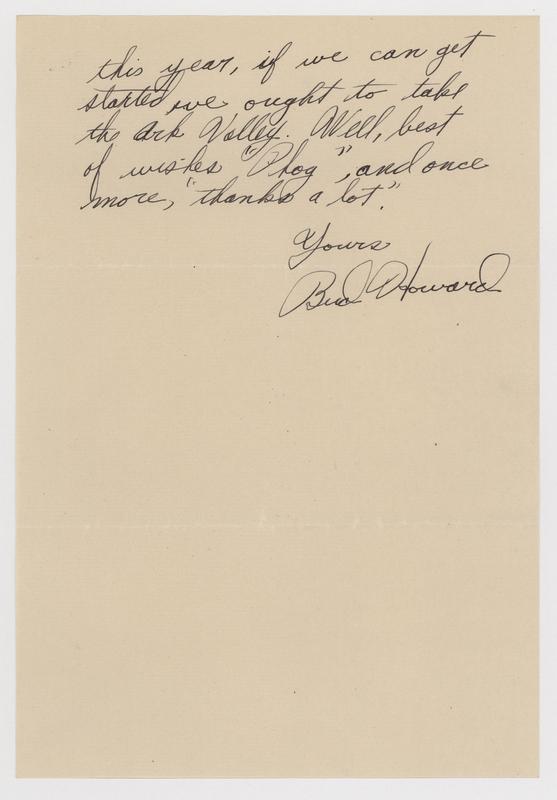 this year, if we can get
started we ought to take
the Ark Valley. Well, best
of wishes "Phog", and once
more, "thanks a lot".
Yours
Bud Howard